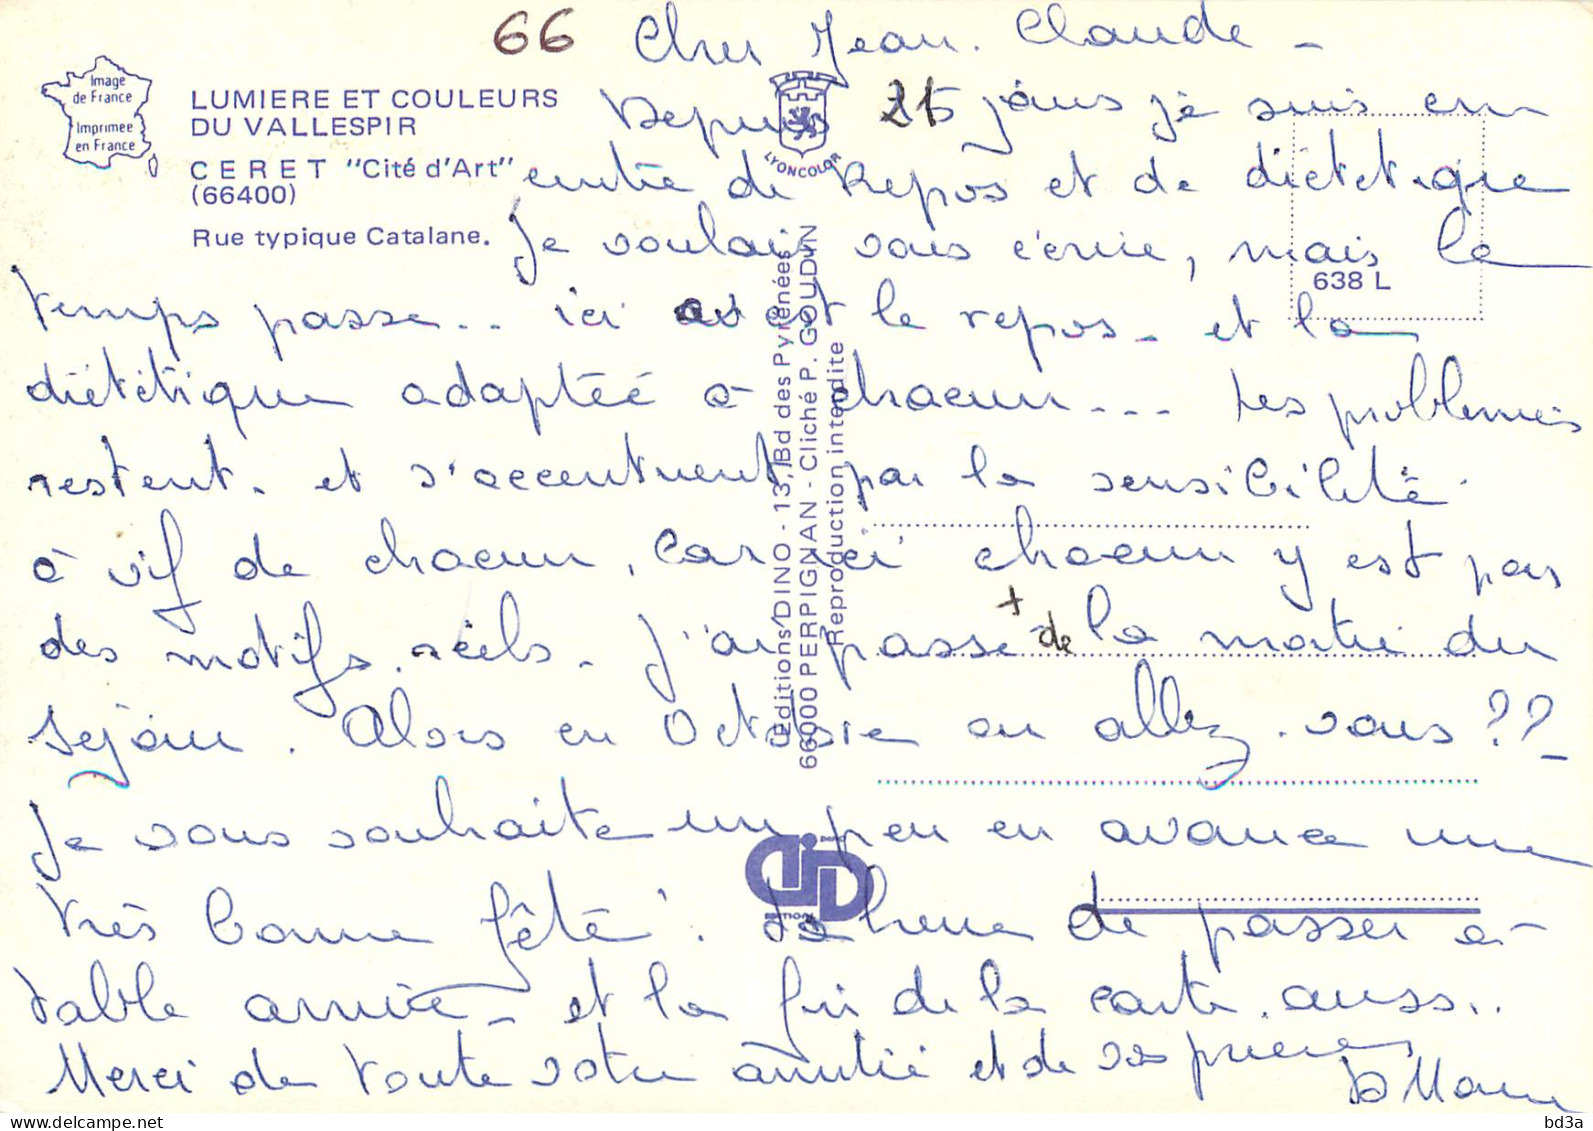 66 Cher Jean. Claude -
Image
de France
Imprimée
en France
LUMIERE ET COULEURS
DU VALLESPIR
CERET "Cité d'Art"
(66400)
Rue typique Catalane.
LYONCOLOR
638 L
Editions DINO - 13, Bd des Pyrénées
66000 PERPIGNAN - Cliché P. GOUDIN
Reproduction interdite
EDITIONS
Depuis 21 jours je suis en
centre de Repos et de diététique
Je voulais vous écrire, mais le
temps passe.. ici c'est le repos - et la
diététique adaptée à chacun... Les problèmes
restent - et s'accentuent par la sensibilité
à vif de chacun, car ici chacun y est par
des motifs réels - J'ai passé + de la moitié du
séjour. Alors en Octobre où allez-vous ?? -
Je vous souhaite un peu en avance une
très bonne fête ! La heure de passer à
table arrive - et la fin de la carte aussi..
Merci de toute votre amitié et de vos prières